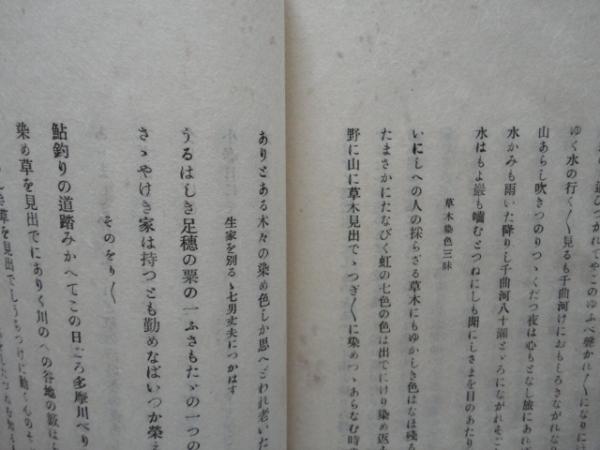 遊びつかれてやこのゆふべ聲かれ〱になりに
ゆく水の行く〱見るも千曲河けにおもしろきながれな
山あらし吹きつのりつゝくだつ夜は心もとなし旅にあれ
水かみも雨いた降りし千曲河八十瀬とゞろにながれ
水はもよ巌も嚙むとつねにしも聞にしさまを目のあたり
草木染色三昧
いにしへの人の採らざる草木にもゆかしき色はなほ殘
たまさかにたなびく虹の七色の色は出でにけり染め返
野に山に草木見出でゝつぎ〱に染めつゝあらなむ時
ありとある木々の染め色しか思へどわれ老いた
生家を別るゝ七男丈夫につかはす
うるはしき足穗の粟の一ふさもたゞの一つの
さゝやけき家は持つとも勤めなばいつか榮
そのをり〱
鮎釣りの道踏みかへてこの日ごろ多摩川べり
染め草を見出でにありく川のへの谷地の藪は
草を見出でしうちつけに動く心の